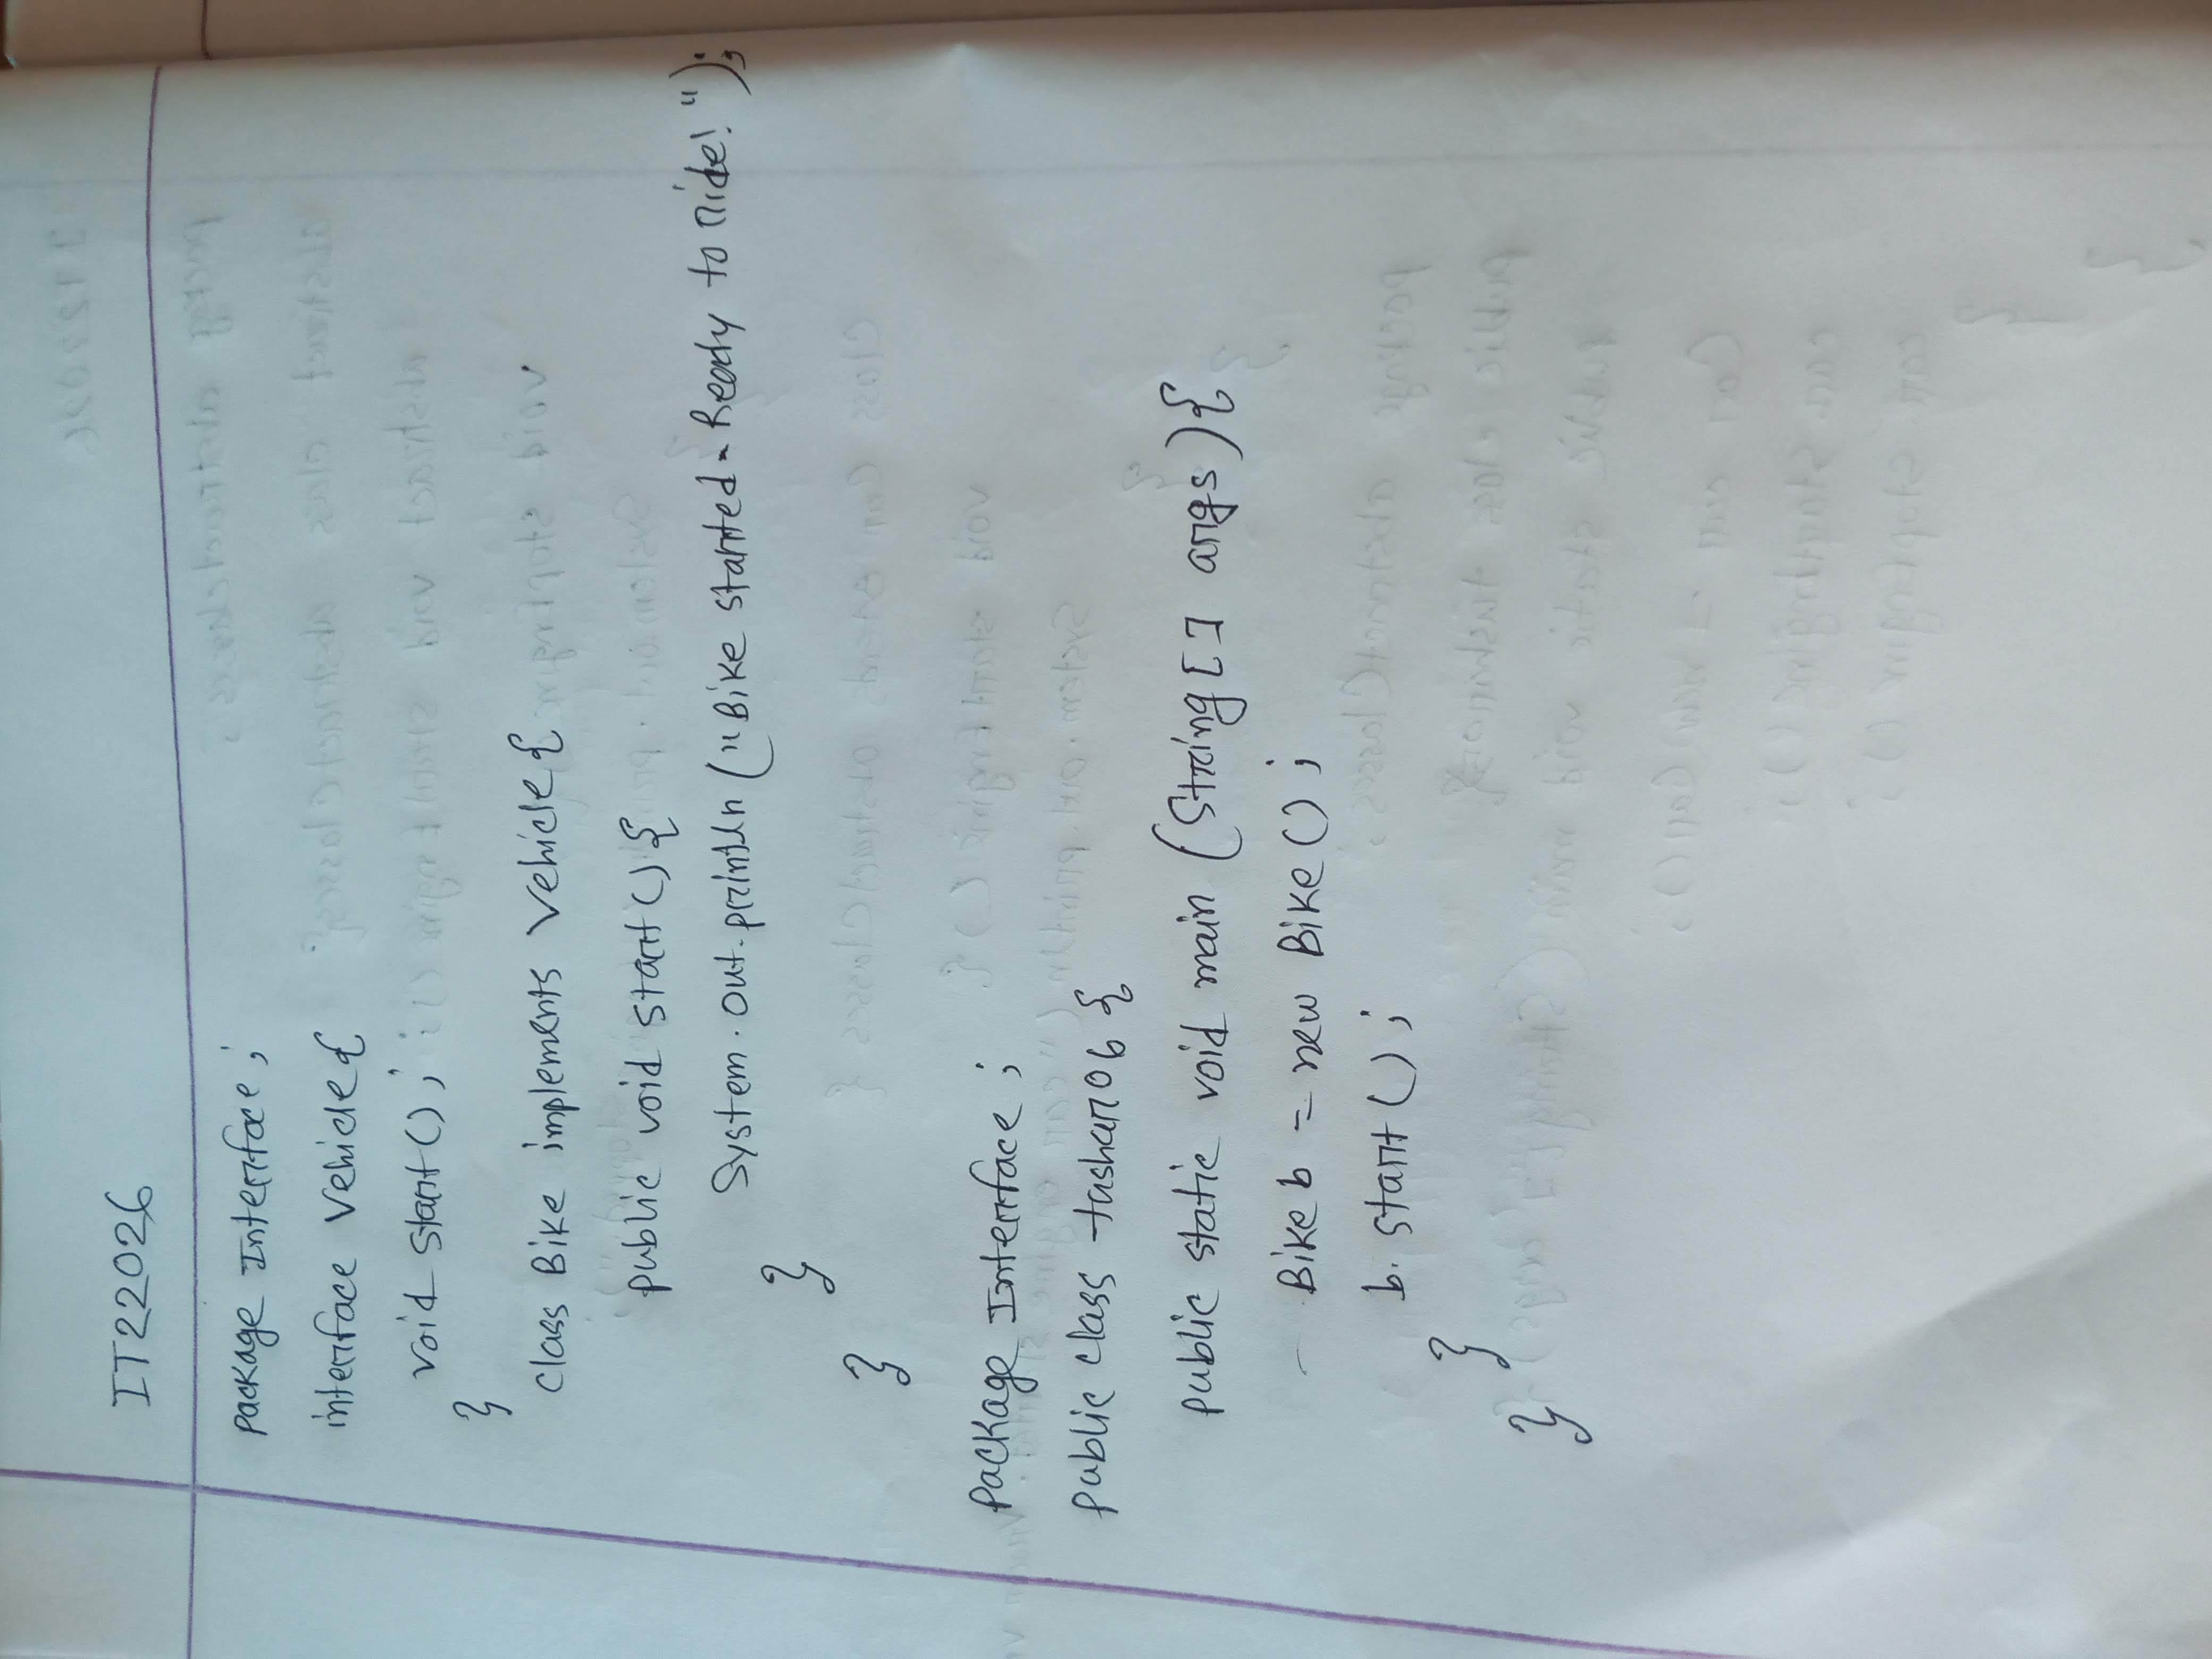 IT22026
package Interface;
interface Vehicle{
void start();
}
class Bike implements Vehicle{
public void start(){
System.out.println("Bike started. Ready to ride!");
}
}
Package Interface;
public class tushar06{
public static void main (String[] args){
Bike b = new Bike();
b. start();
}
}